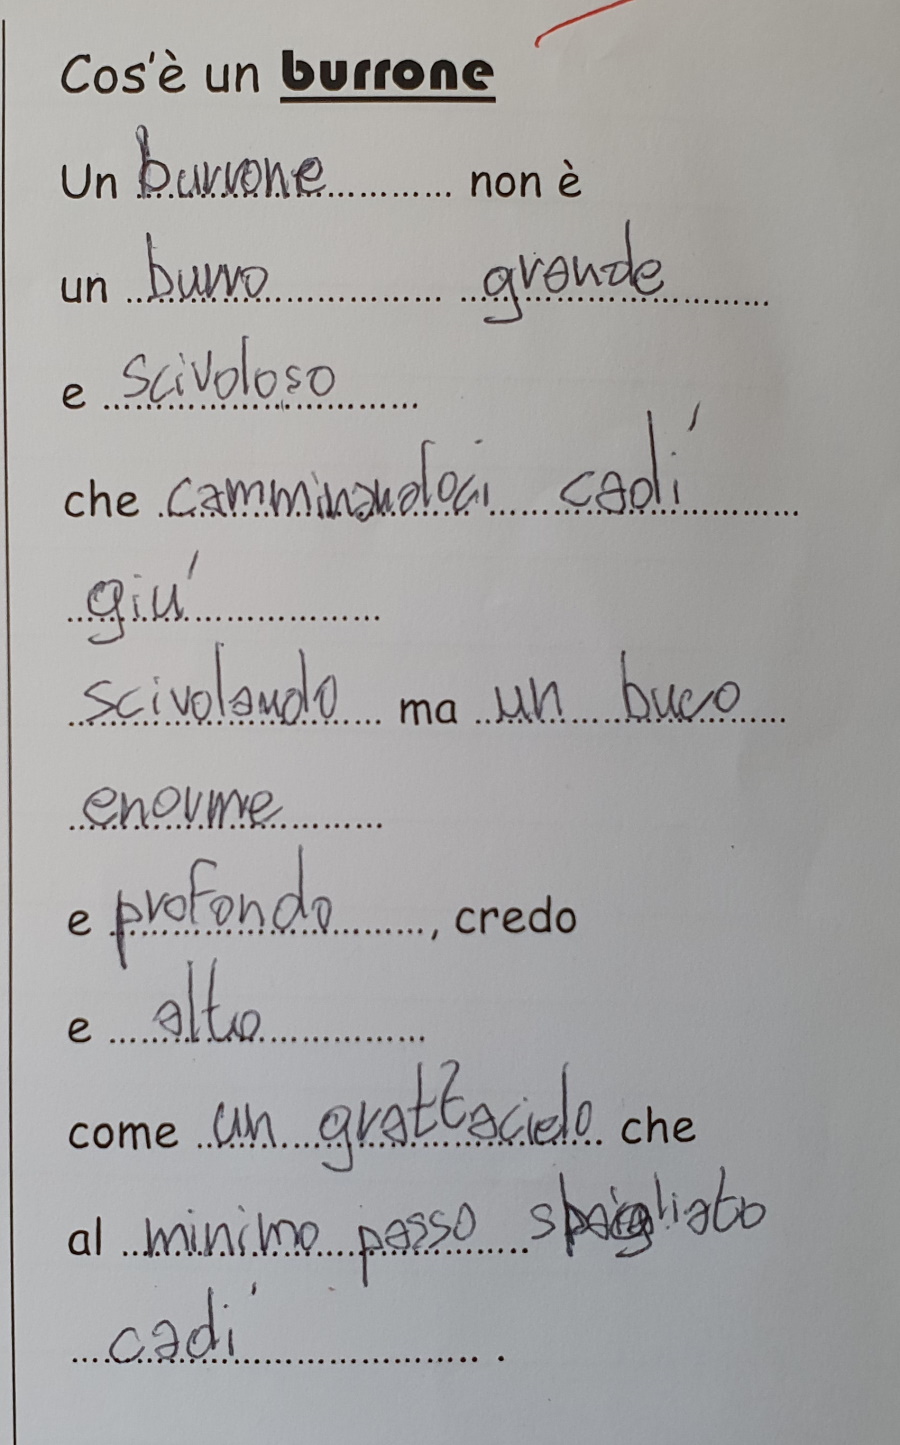 Cos'è un burrone
Un burrone non è
un burro grande
e scivoloso
che camminandoci cadi'
giu'
scivolando ma un buco
enorme
e profondo, credo
e alto
come un grattacielo che
al minimo passo
cadi'.